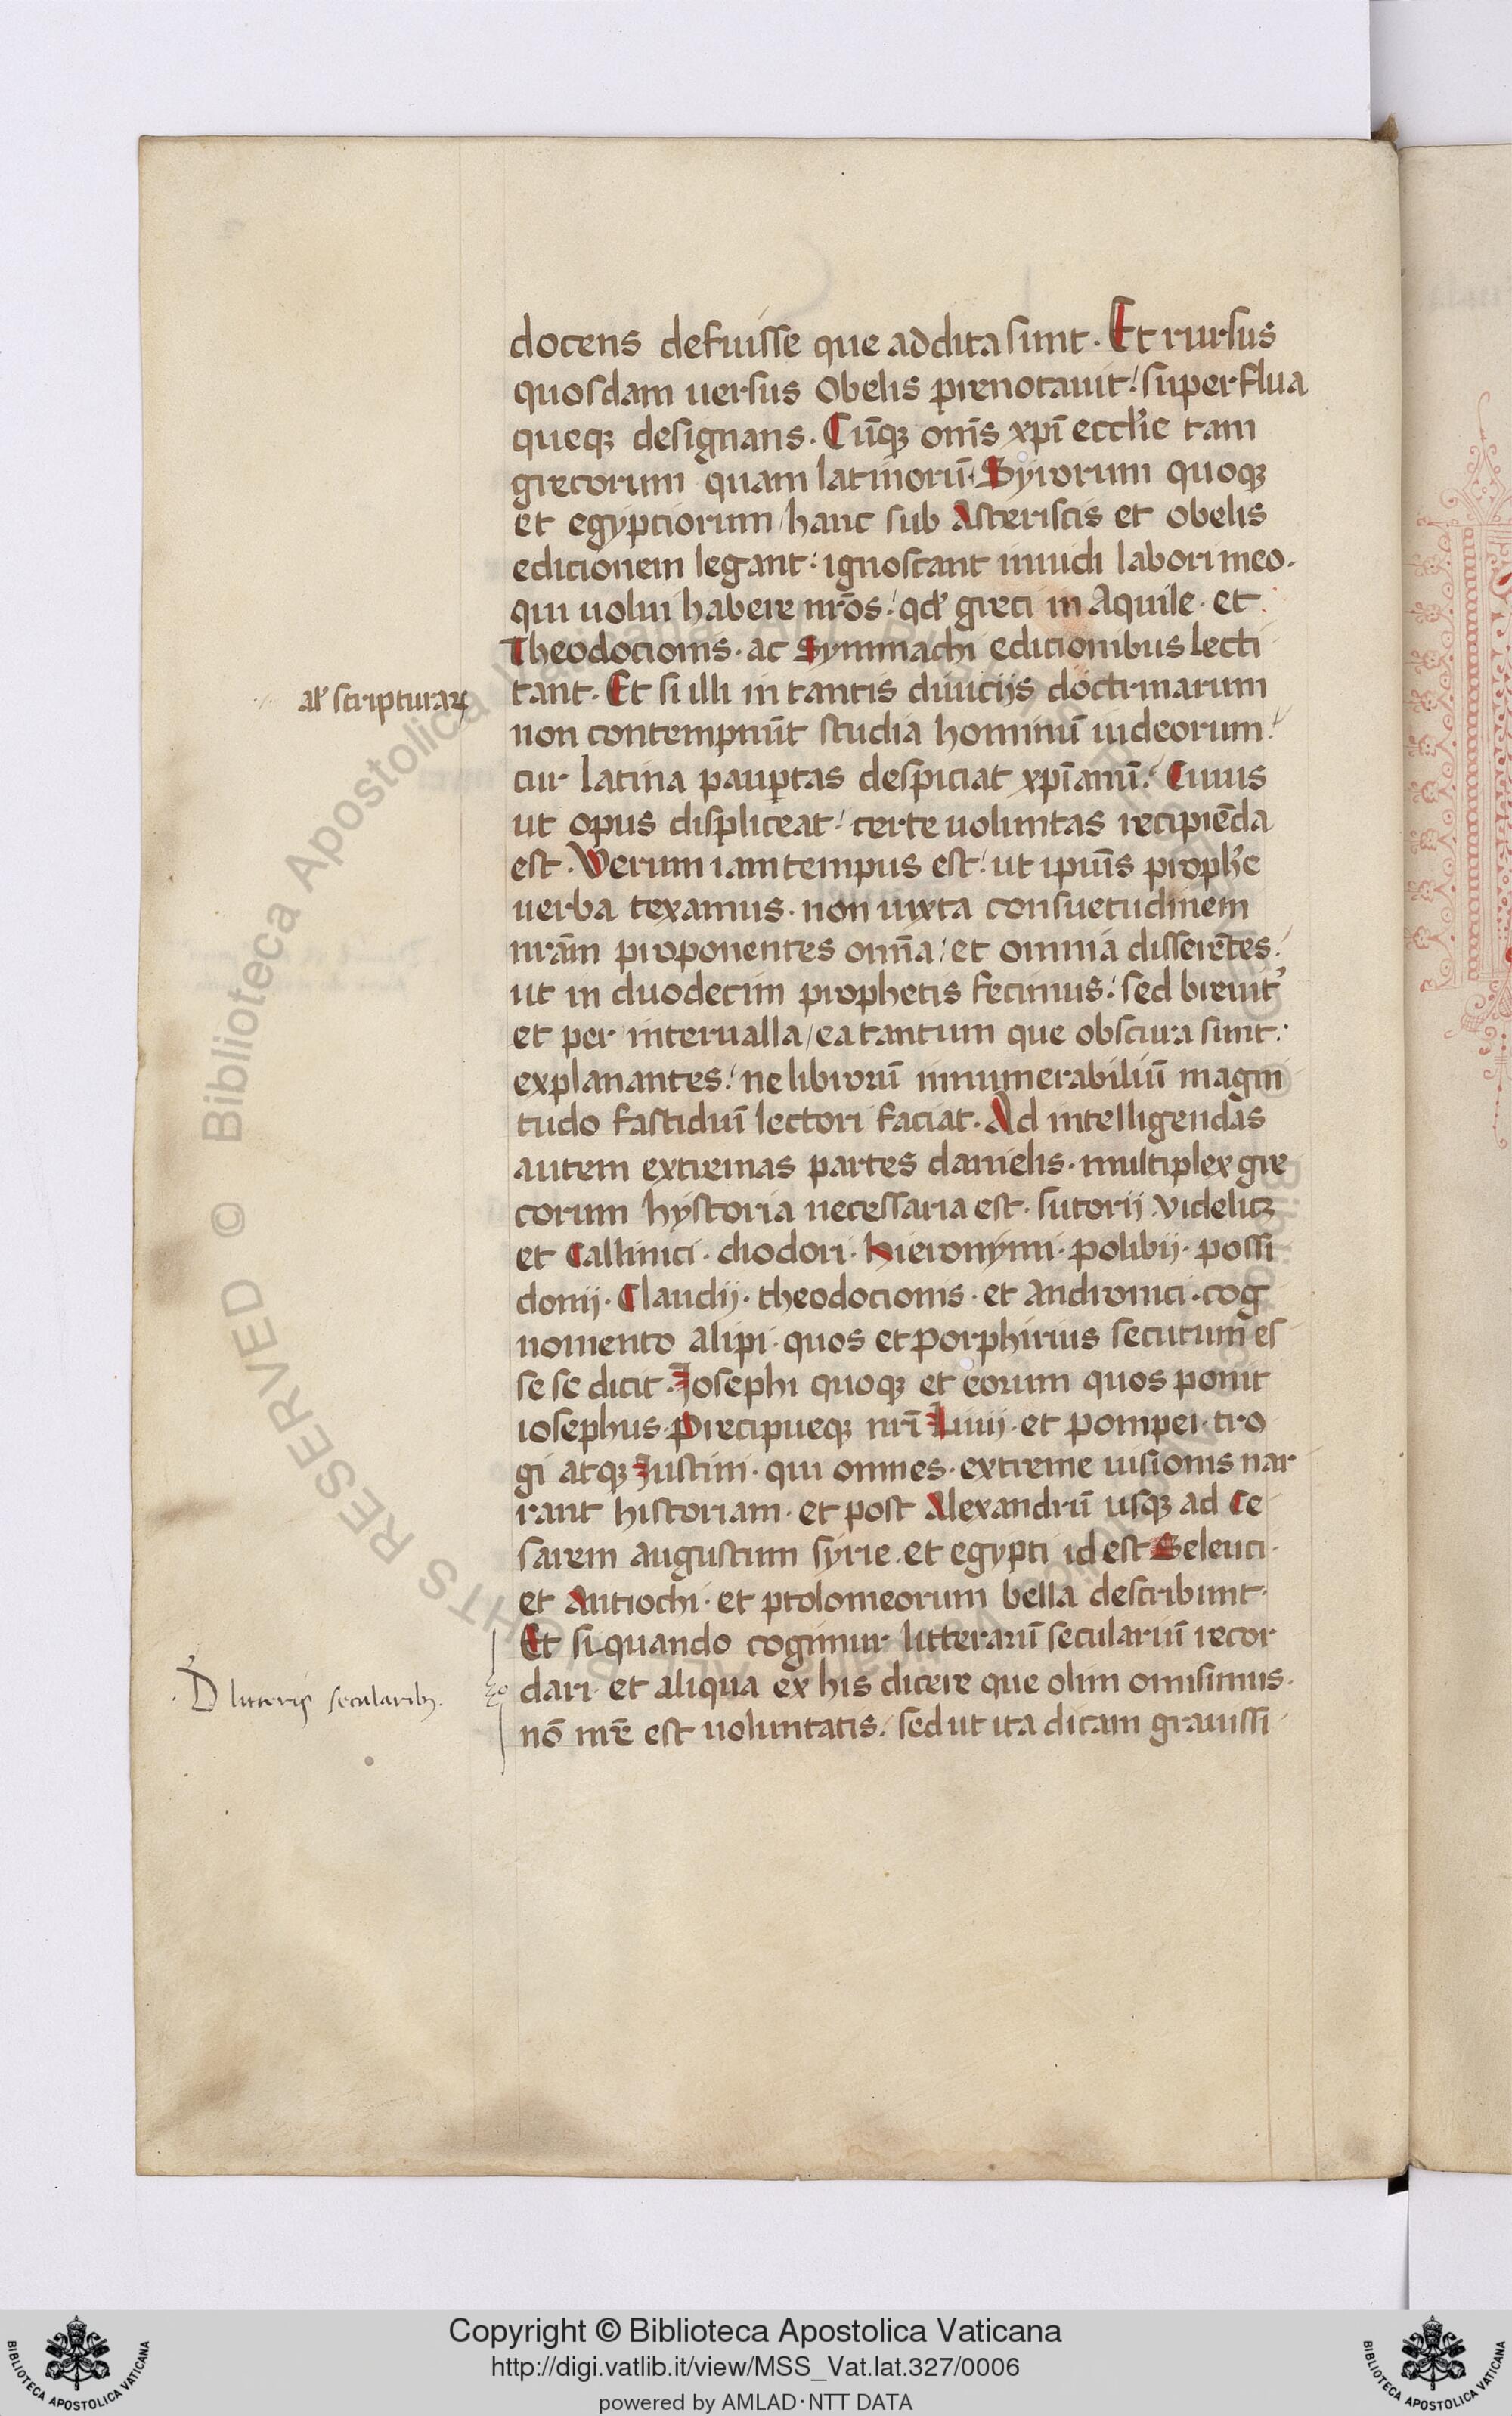 docens defuisse que addita sunt. Et rursus
quosdam uersus obelis prenotauit: superflua
queq; designans. Cūq; om̄s xp̄i eccl'ie tam
grecorum quam latinorū. Syrorum quoq;
et egyptiorum/ hanc sub Asteriscis et obelis
editionem legant: ignoscant inuidi labori meo.
qui uolui habere nr̄os: qd' greci in Aquile. et
al' scripturaꝝ
Theodocionis. ac Symmachi editionibus lecti
tant. Et si illi in tantis diuiciis doctrinarum
non contempnūt studia hominū iudeorum:
cur latina paup̱tas despiciat xp̄ianū: Cuius
ut opus displiceat: certe uoluntas recipiēda
est. Verum iam tempus est: ut ipuīs proph'e
uerba texamus. non iuxta consuetudinem
nrām proponentes om̄ia: et omnia disserētes:
ut in duodecim prophetis fecimus: sed breuit'
et per interualla/ ea tantum que obscura sunt:
explanantes: ne librorū innumerabiliū magni
tudo fastidiū lectori faciat. Ad intelligendas
autem extremas partes danielis. multiplex gre
corum hystoria necessaria est. sutorij videlicꝫ
et Callinici. diodori. hieronymi. polibij. possi
donij. Claudij. theodocionis. et andronici. cog
nomento alipi. quos et porphirius secutum es
se se dicit. Josephi quoq; et eorum quos ponit
iosephus. Precipueq; nr̄i Liuij. et pompei. tro
gi atq; Justini. qui omnes. extreme uisionis nar
rant historiam. et post Alexandrū usq; ad Ce
sarem augustum syrie. et egypti id est Seleuci.
et Antiochi. et ptolomeorum bella describunt.
Et si quando cogimur litterarū seculariū recor
dari. et aliqua ex his dicere que olim omisimus.
nō mēe est uoluntatis: sed ut ita dicam grauissi
D litteris secularibꝫ.
Copyright © Biblioteca Apostolica Vaticana
http://digi.vatlib.it/view/MSS_Vat.lat.327/0006
powered by AMLAD·NTT DATA
BIBLIOTECA APOSTOLICA VATICANA
BIBLIOTECA APOSTOLICA VATICANA